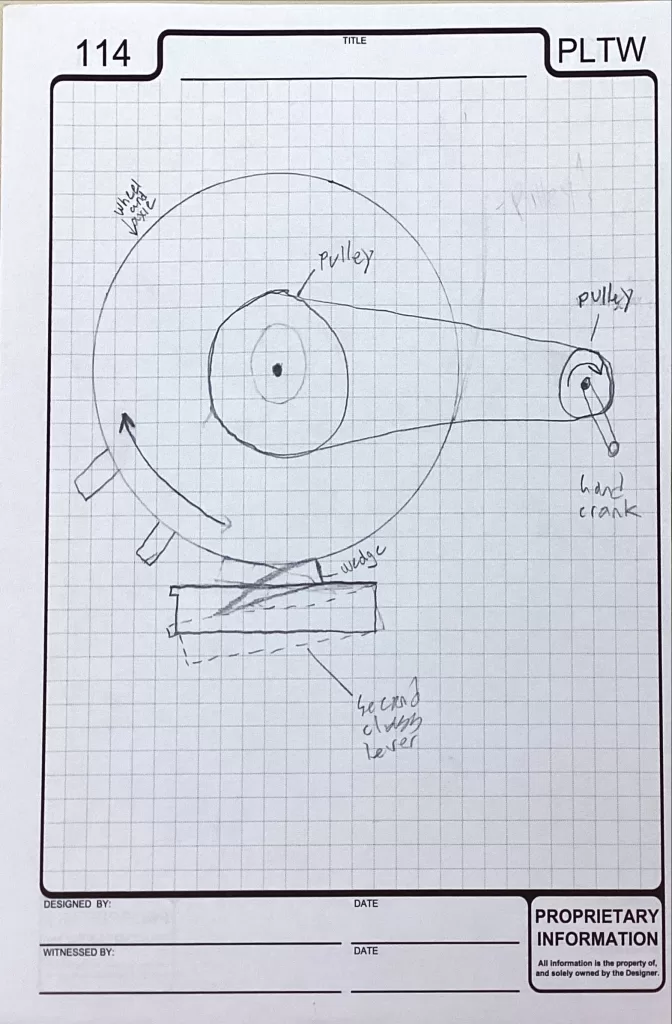 114
TITLE
PLTW
wheel
and
axle
pulley
pulley
hand
crank
wedge
second
class
lever
DESIGNED BY:
DATE
WITNESSED BY:
DATE
PROPRIETARY
INFORMATION
All information is the property of,
and solely owned by the Designer.